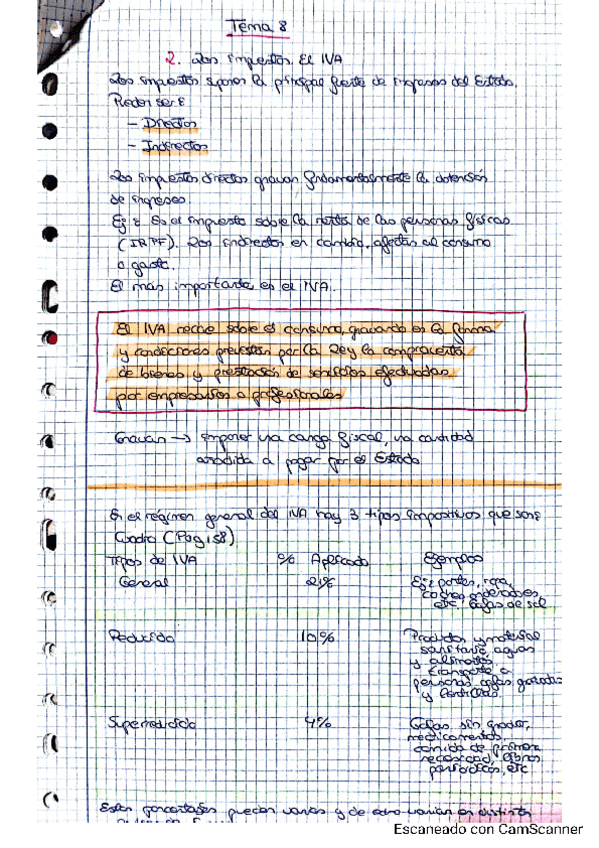 Tema 8
2. Los impuestos. El IVA
Los impuestos suponen la principal fuente de ingresos del Estado.
Pueden ser:
- Directos
- Indirectos
Los impuestos directos gravan fundamentalmente la obtención
de ingresos
Ej: Es el impuesto sobre la renta de las personas físicas
(IRPF). Los indirectos en cambio, afectan al consumo
o gasto.
El más importante es el IVA.
El IVA recae sobre el consumo, gravando en la forma
y condiciones previstas por la Ley la compraventa
de bienes y prestación de servicios efectuadas
por empresarios o profesionales
Gravar → imponer una carga fiscal, una cantidad
añadida a pagar por el Estado
En el régimen general del IVA hay 3 tipos impositivos que son:
Cuadro (Pág 158)
Tipos de IVA % Aplicado Ejemplos
General 21% Ej: portes, ropa,
coches, ordenadores,
etc, gafas de sol
Reducido 10% Productos y material
sanitario, aguas
y alimentos,
transporte de
personas, gafas graduadas
y lentillas.
Superreducido 4% Gafas sin graduar,
medicamentos,
comida de primera
necesidad, libros
periódicos, etc
Estos porcentajes pueden variar y de hecho varían en distintos
Escaneado con CamScanner